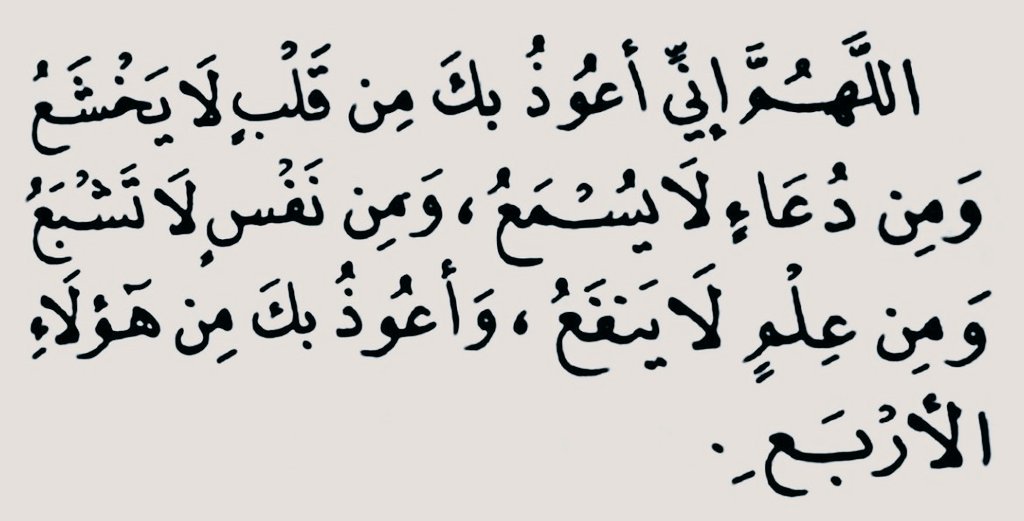 اللَّهُمَّ إِنِّي أَعُوذُ بِكَ مِن قَلْبٍ لَا يَخْشَعُ
وَمِن دُعَاءٍ لَا يُسْمَعُ ، وَمِن نَفْسٍ لَا تَشْبَعُ
وَمِن عِلْمٍ لَا يَنفَعُ ، وَأَعُوذُ بِكَ مِن هَؤُلَاءِ
الأَرْبَعِ .